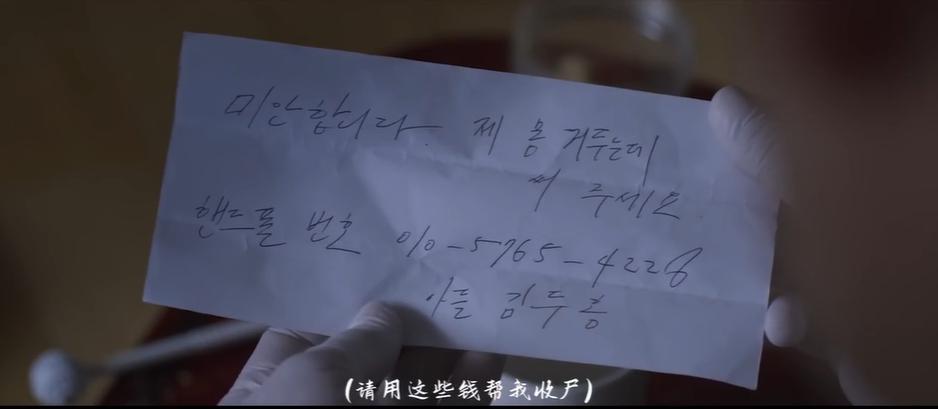 미안합니다. 제 몸 거두는데
써 주세요.
핸드폰 번호 010-5765-4226
아들 김두홍
(请用这些钱帮我收尸)